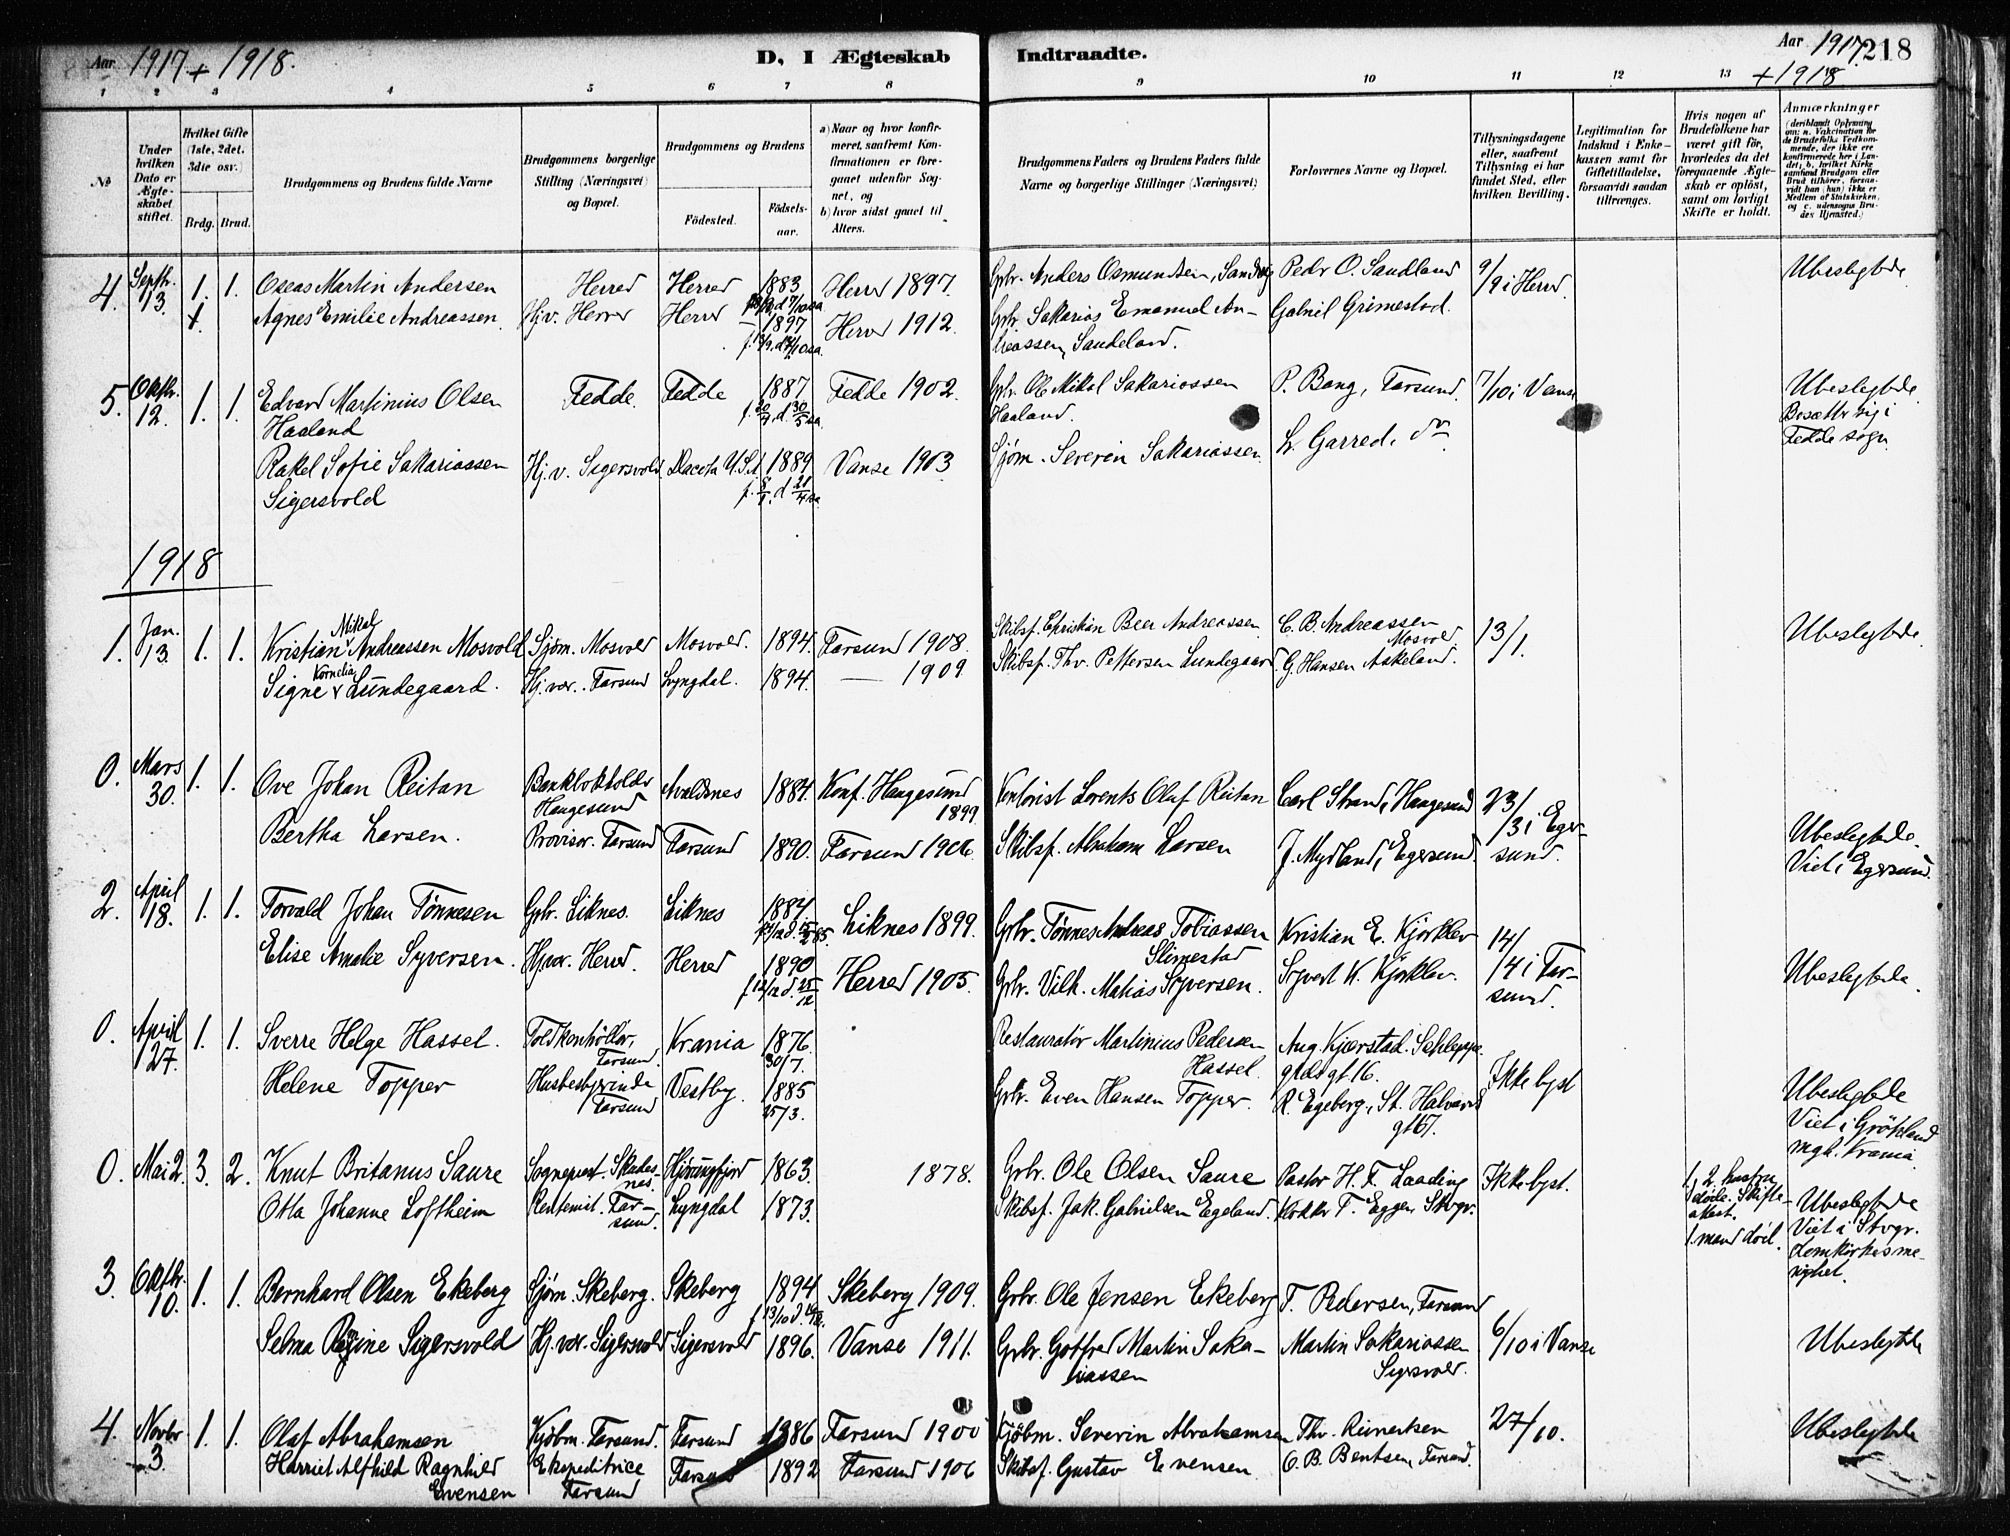 Aar 1917 + 1918.
D, I Ægteskab Indtraadte.
Aar 1917 218
+ 1918.
1 2 3 4 5 6 7 8 9 10 11 12 13
№
Under hvilken Dato er Ægteskabet stiftet.
Hvilket Gifte (1ste, 2det, 3die osv.)
Brdg. Brud.
Brudgommens og Brudens fulde Navne
Brudgommens borgerlige Stilling (Næringsvei) og Bopæl.
Brudgommens og Brudens
Fødested. Fødsels-aar.
a) Naar og hvor konfirmeret, saafremt Konfirmationen er foregaaet udenfor Sognet, og
b) hvor sidst gaaet til Alters.
Brudgommens Faders og Brudens Faders fulde Navne og borgerlige Stillinger (Næringsvei)
Forlovernes Navne og Bopæl.
Tillysningsdagene eller, saafremt Tillysning ei har fundet Sted, efter hvilken Bevilling.
Legitimation for Indskud i Enkekassen samt for Giftetilladelse, forsaavidt saadan tiltrænges.
Hvis nogen af Brudefolkene har været gift før, hvorledes da det foregaaende Ægteskab er opløst, samt om lovligt Skifte er holdt.
Anmærkninger
(deriblandt Oplysning om: a. Vakcination for de Brudefolks Vedkommende, der ikke ere konfirmerede her i Landet; b. hvilket Kirkesamfund Brudgom eller Brud tilhører, forsaavidt han (hun) ikke er Medlem af Statskirken, og c. udensogns Brudes Hjemsted.)
4. Septbr. 13. 1. 1. Oseas Martin Andersen Herred Herred 1883 Herred 1897. Gbr. Anders Osmundsen, Pedr O. Sandland 9/9 i Herred Ubeslegtede
Agnes Emilie Andreassen. Hj.v. Herred Herred 1897 Herred 1912. Gbr. Sakarias Emanuel An- Gabriel Grimestad.
reassen, Sandeland.
5. Oktbr. 12. 1. 1. Edvard Martinius Olsen Fedde. Fedde 1887 Fedde 1902. Gbr. Ole Mikal Sakariassen P. Bang, Farsund. 7/10 i Vanse Ubeslegtede
Haaland Haaland. Bosætter sig i
Fedde sogn
Rakel Sofie Sakariassen Hj.v. Sigersvold Dacota U.S.A 1889 Vanse 1903 Sjøm. Severin Sakariassen. L. Garred, do
Sigersvold
1918
1. Jan. 13. 1. 1. Kristian Mikal Andreassen Mosvold Sjøm. Mosvold Mosvold. 1894. Farsund 1908. Skibsf. Christian Beer Andreassen C. B. Andreassen Mosvold 13/1. Ubeslegtede.
Signe Kornelia Lundegaard. Hj.vær. Farsund Lyngdal. 1894. — 1909. Skibsf. Thv. Pettersen Lundegaard. G. Hansen Askeland.
0. Mars 30. 1. 1. Ove Johan Reitan Bankbokholder Haugesund Avaldsnes 1884. Konf. Haugesund 1899 Kontorist Lorents Olaf Reitan Carl Strand, Haugesund 23/3 i Eger-
Bertha Larsen. Provisor. Farsund Farsund 1890. Farsund 1906. Skibsf. Abraham Larsen J. Myrland, Egersund. sund. Ubeslegtede.
Viet i Egersund.
2. April 18. 1. 1. Torvald Johan Tønnesen Gbr. Liknes. Liknes 1884 Liknes 1899. Gbr. Tønnes Andreas Tobiassen Kristian E. Kjørklev 14/4 i Far-
Slimestad
Elise Amalie Syversen. Hj.vær. Herred. Herred 1890 Herred 1905. Gbr. Vilh. Matias Syversen. Syvert K. Kjørklev. sund. Ubeslegtede.
0. April 27. 1. 1. Sverre Helge Hassel. Toldkontrollør, Farsund Krania 1876 30/7. Restauratør Martinius Pedersen Hassel. Aug. Kjærstad. Schleppe-
grels gt 16.
Helene Topper Husbestyrinde Farsund Vestby. 1885 25/3. Gbr. Even Hansen Topper. R. Egeberg, St. Halvards gt 67. Ikke lyst Ubeslegtede
Viet i Grønland
mgh. Krania.
0. Mai 2. 3. 2. Knut Britanus Saure Sogneprest Skudes- nes. Hjørungfjord 1863. 1878. Gbr. Ole Olsen Saure Pastor H. F. Laading Ikke lyst. 1. 2. hustru døde. Skifte-
attest.
Otta Johanne Loftheim Rentenist. Far- sund. Lyngdal 1873. Skibsf. Jak. Gabrielsen Egeland. Klokker T. Eggen, Stvgr. 1. mand død. Ubeslegtede
Viet i Stvgr.
Domkirkes me-
nighet.
3. Oktbr. 10. 1. 1. Bernhard Olsen Ekeberg Sjøm. Skeberg. Skeberg 1894 Skeberg 1909. Gbr. Ole Jensen Ekeberg T. Pedersen, Farsund
Selma Regine Sigersvold Hj.vær. Sigersvold Sigersvold 1896. Vanse 1911. Gbr. Gotfred Martin Saka- Martin Sakariassen Sigersvold. 6/10 i Vanse Ubeslegtede
riassen
4. Novbr 3. 1. 1. Olaf Abrahamsen Kjøbm. Farsund. Farsund 1886 Farsund 1900 Kjøbm. Severin Abrahamsen Thv. Reinertsen 27/10. Ubeslegtede
Harriet Alfhild Ragnhild Ekspeditrice Farsund 1892 Farsund 1906 Skibsf. Gustav Evensen O. B. Bentsen, Farsund.
Evensen Farsund